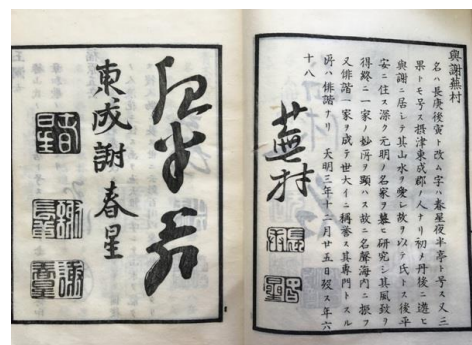 與謝蕪村
名ハ長庚後寅ト改ム字ハ春星夜半亭ト号ス又三
果トモ号ス摂津東成郡ノ人ナリ初メ丹後ニ遊ヒ
與謝ニ居レテ其山水ヲ愛レ故ヲ以テ氏トス後平
安ニ住ス深ク元明ノ名家ヲ慕ヒ研究シ其風致ヲ
得終ニ一家ノ妙所ヲ顕ハス故ニ名聲海内ニ振フ
又俳諧一家ヲ成テ世大イニ稱誉ス其専門トスル
所ハ俳諧ナリ 天明三年十二月廿五日殁ス年六
十八
蕪村
東成謝春星